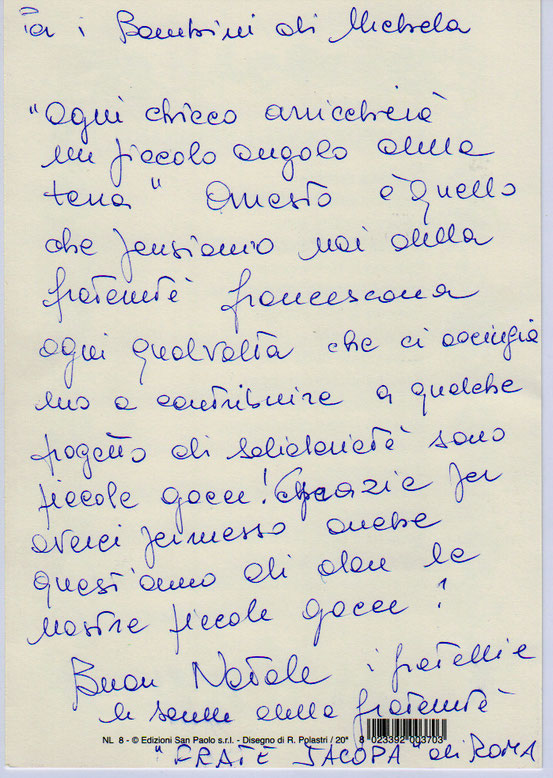 Per i Bambini di Michela
"Ogni chicco arricchirà
un piccolo angolo della
terra" Questo è quello
che pensiamo noi della
fraternità francescana
ogni qualvolta che ci accingia
mo a contribuire a qualche
progetto di solidarietà sono
piccole gocce! Grazie per
averci permesso anche
quest'anno di dare le
nostre piccole gocce!
Buon Natale i fratelli e
le sorelle della fraternità
NL 8 - © Edizioni San Paolo s.r.l. - Disegno di R. Polastri / 20*
8 023392 003703
"FRATE JACOPA" di ROMA